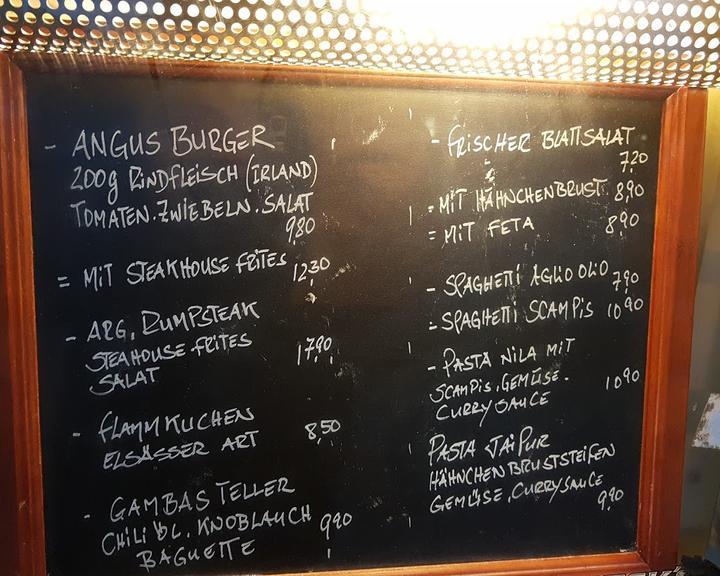 - ANGUS BURGER
200g RINDFLEISCH (IRLAND)
TOMATEN.ZWIEBELN.SALAT
9,80
= MIT STEAKHOUSE FRITES 12,30
- ARG. RUMPSTEAK
STEAHOUSE FRITES 17,90
SALAT
- FLAMMKUCHEN
ELSÄSSER ART 8,50
- GAMBAS TELLER
CHILI ÖL. KNOBLAUCH 9,90
BAGUETTE
- FRISCHER BLATTSALAT
7,20
= MIT HÄHNCHENBRUST 8,90
= MIT FETA 8,90
- SPAGHETTI AGLIO OLIO 7,90
- SPAGHETTI SCAMPIS 10,90
- PASTA NILA MIT
SCAMPIS.GEMÜSE. 10,90
CURRYSAUCE
PASTA JAIPUR
HÄHNCHENBRUSTSTEIFEN
GEMÜSE.CURRYSAUCE
9,90